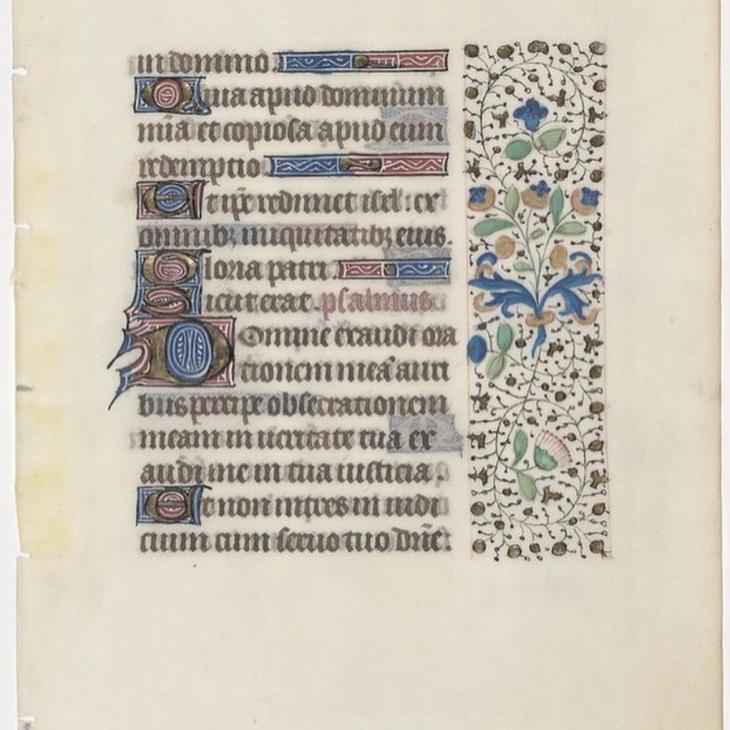 in domino
Quia apud dominum
mia et copiosa apud eum
redemptio
Et ipe redimet isrl: ex
omnibz iniquitatibz eius.
Gloria patri.
Sicut erat. psalmus
Domine exaudi ora
tionem mea auri
bus percipe obsecrationem
meam in ueritate tua ex
audi me in tua iusticia.
Et non intres in iudi
cium cum seruo tuo dne: